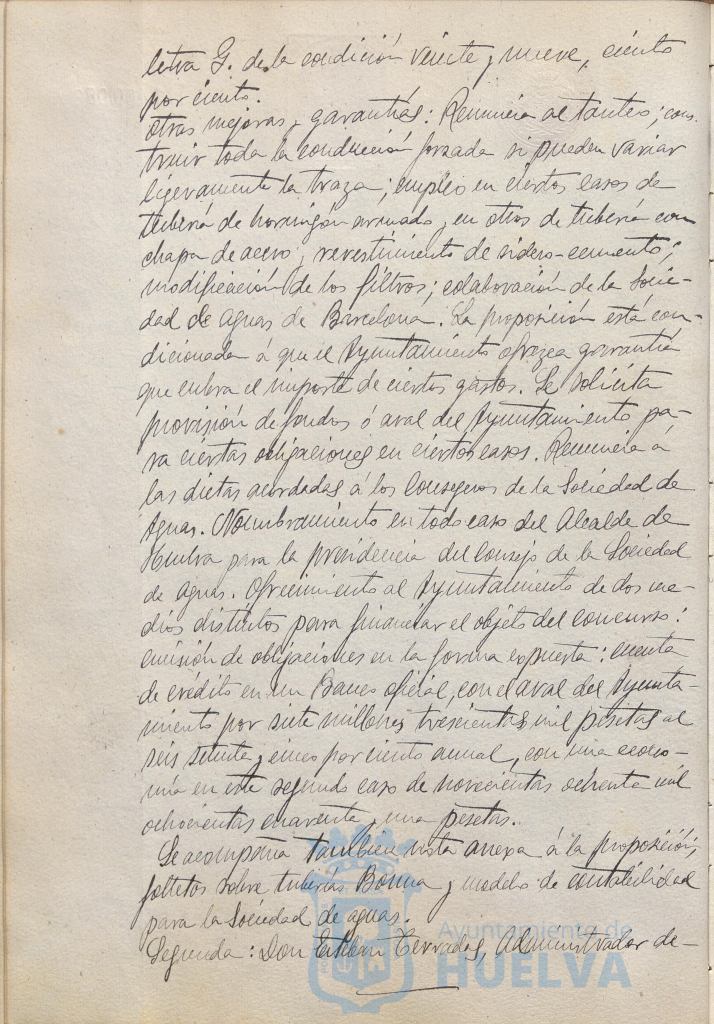 letra G. de la condición veinte y nueve, ciento
por ciento.
Otras mejoras y garantías: Renuncia al tanteo; cons-
truir toda la conducción forzada si pueden variar
ligeramente la traza; empleo en ciertos casos de
tubería de hormigón armado y en otros de tubería con
chapa de acero y revestimiento de sidero-cemento;
modificación de los filtros; colaboración de la Socie-
dad de Aguas de Barcelona. La proposición está con-
dicionada á que el Ayuntamiento ofrezca garantía
que cubra el importe de ciertos gastos. Se solicita
provisión de fondos ó aval del Ayuntamiento pa-
ra ciertas obligaciones en ciertos casos. Renuncia á
las dietas acordadas á los Consejeros de la Sociedad de
Aguas. Nombramiento en todo caso del Alcalde de
Huelva para la presidencia del Consejo de la Sociedad
de aguas. Ofrecimiento al Ayuntamiento de dos me-
dios distintos para financiar el objeto del concurso:
emisión de obligaciones en la forma expuesta: cuenta
de crédito en un Banco oficial, con el aval del Ayunta-
miento por siete millones trescientas mil pesetas al
seis setenta y cinco por ciento anual, con una econo-
mía en este segundo caso de novecientas ochenta mil
ochocientas cuarenta y una pesetas.
Se acompaña también nota anexa á la proposición,
folletos sobre tuberías Bonna y modelo de contabilidad
para la Sociedad de aguas.
Segunda: Don Esteban Terradas, Administrador de-
Ayuntamiento de
HUELVA